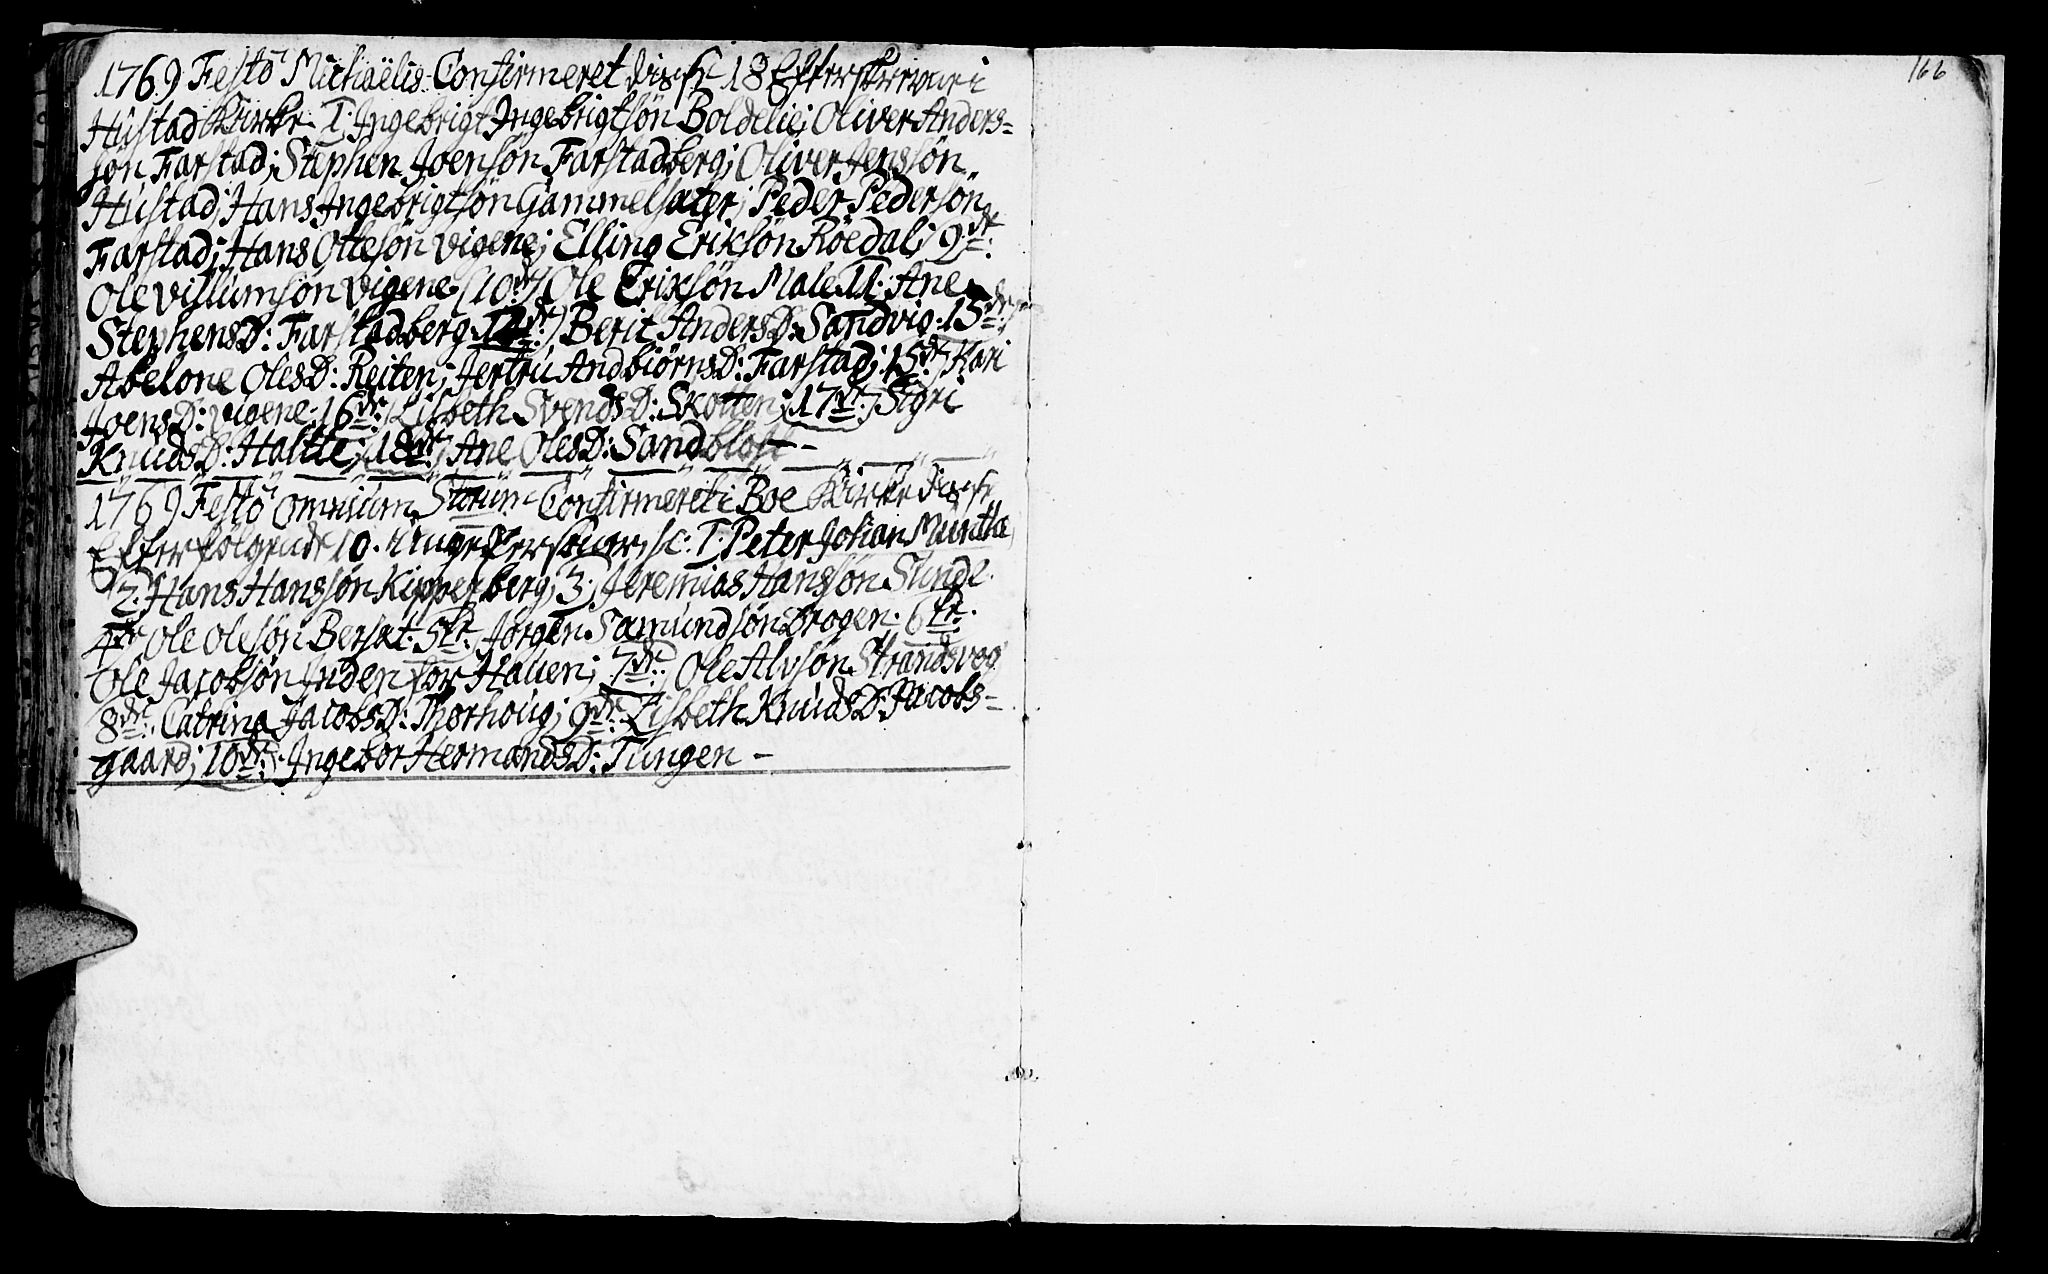 1769 Festo Michaëlis Confirmeret disse 18 Efterskrevne i
Hustad Kirke 1. Ingebrigt Ingebrigtsøn Boldelie; Oliver Anders=
søn Farstad; Stephen Joensøn Farstadberg; Oliver Jenssøn
Hustad; Hans Ingebrigtsøn Gammelsæter; Peder Pedersøn
Farstad; Hans Ottesøn Vigene; Elling Eriksøn Røedal; 9de:
Ole Villumsøn Vigene (10de) Ole Eriksøn Male 11. Ane
StephensD: Farstadberg 12de: Berit AndersD: Sandvig. 13de:
Abelone OlesD: Reiten; Jertru AndbiørnsD: Farstad; 15de Kari
JoensD: Vigene; 16de: Lisbeth SvendsD: Skotten; 17de: Sigri
KnudsD: Haltle; 18de: Ane OlesD: Sandblost –
1769 Festo omnium Storum Confirmeret i Boe Kirke disse
Efterfølgende 10. unge Personer, sc: 1. Peter Johan Munthe
2. Hans Hanssøn Kipperberg; 3. Jeremias Hanssøn Sunde.
4de Ole Olesøn Bersæt. 5te: Jørgen Samundsøn Drogen. 6te:
Ole Jacobsøn Inden for Hauen; 7de: Ole Alvsøn Strandsvog
8de: Catrina JacobsD: Thorhoug; 9de: Lisbeth KnudsD: Jacobs=
gaard; 10de: Ingebor HermandsD: Tungen –
166